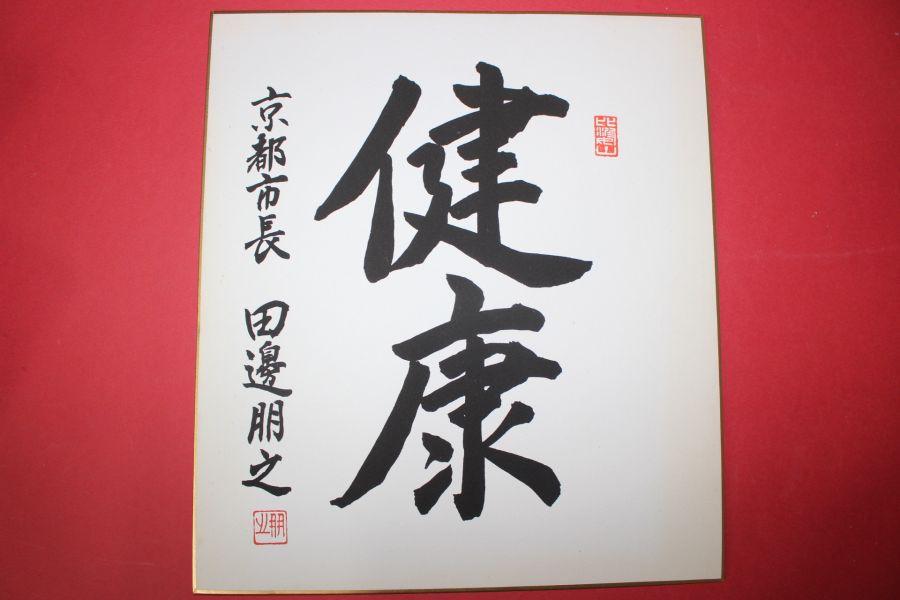 健康
京都市長 田邊朋之
朋之